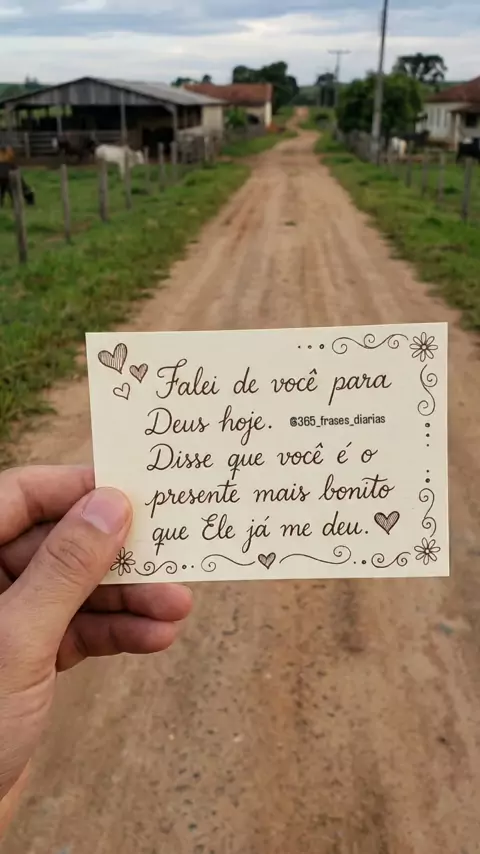 Falei de você para
Deus hoje. @365_frases_diarias
Disse que você é o
presente mais bonito
que Ele já me deu.